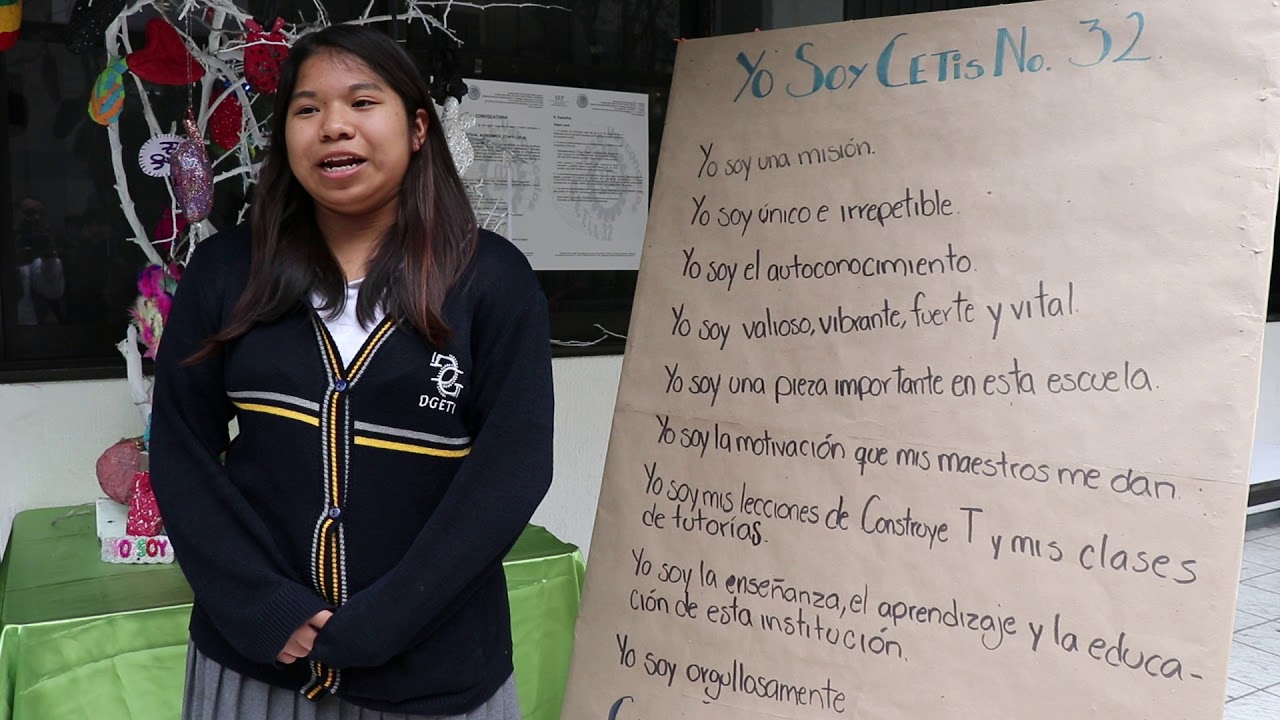 Yo Soy CETis No. 32.
Yo soy una misión.
Yo soy único e irrepetible.
Yo soy el autoconocimiento.
Yo soy valioso, vibrante, fuerte y vital.
Yo soy una pieza importante en esta escuela.
Yo soy la motivación que mis maestros me dan.
Yo soy mis lecciones de Construye T y mis clases
de tutorías.
Yo soy la enseñanza, el aprendizaje y la educa-
ción de esta institución.
Yo soy orgullosamente
DGETI
YO SOY
CONVOCATORIA